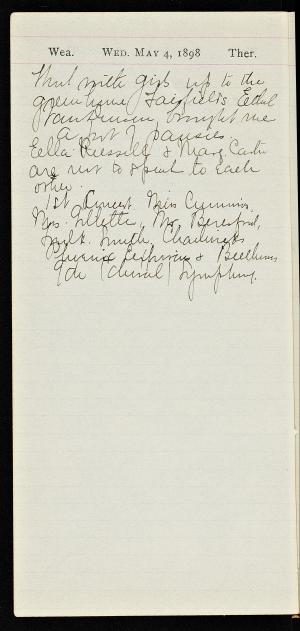 Wea. WED. MAY 4, 1898 Ther.
with girls up to the
greenhouse Fairfield's Ethel
brought me
a pot of pansies.
Ella Russell & Marg. Carter
are not to speak to each
other.
1st Concert. Miss Cummins
Mrs. Gillette, Mr. Beresford,
Smith,
& Beethovens
9th (Choral) Symphony.